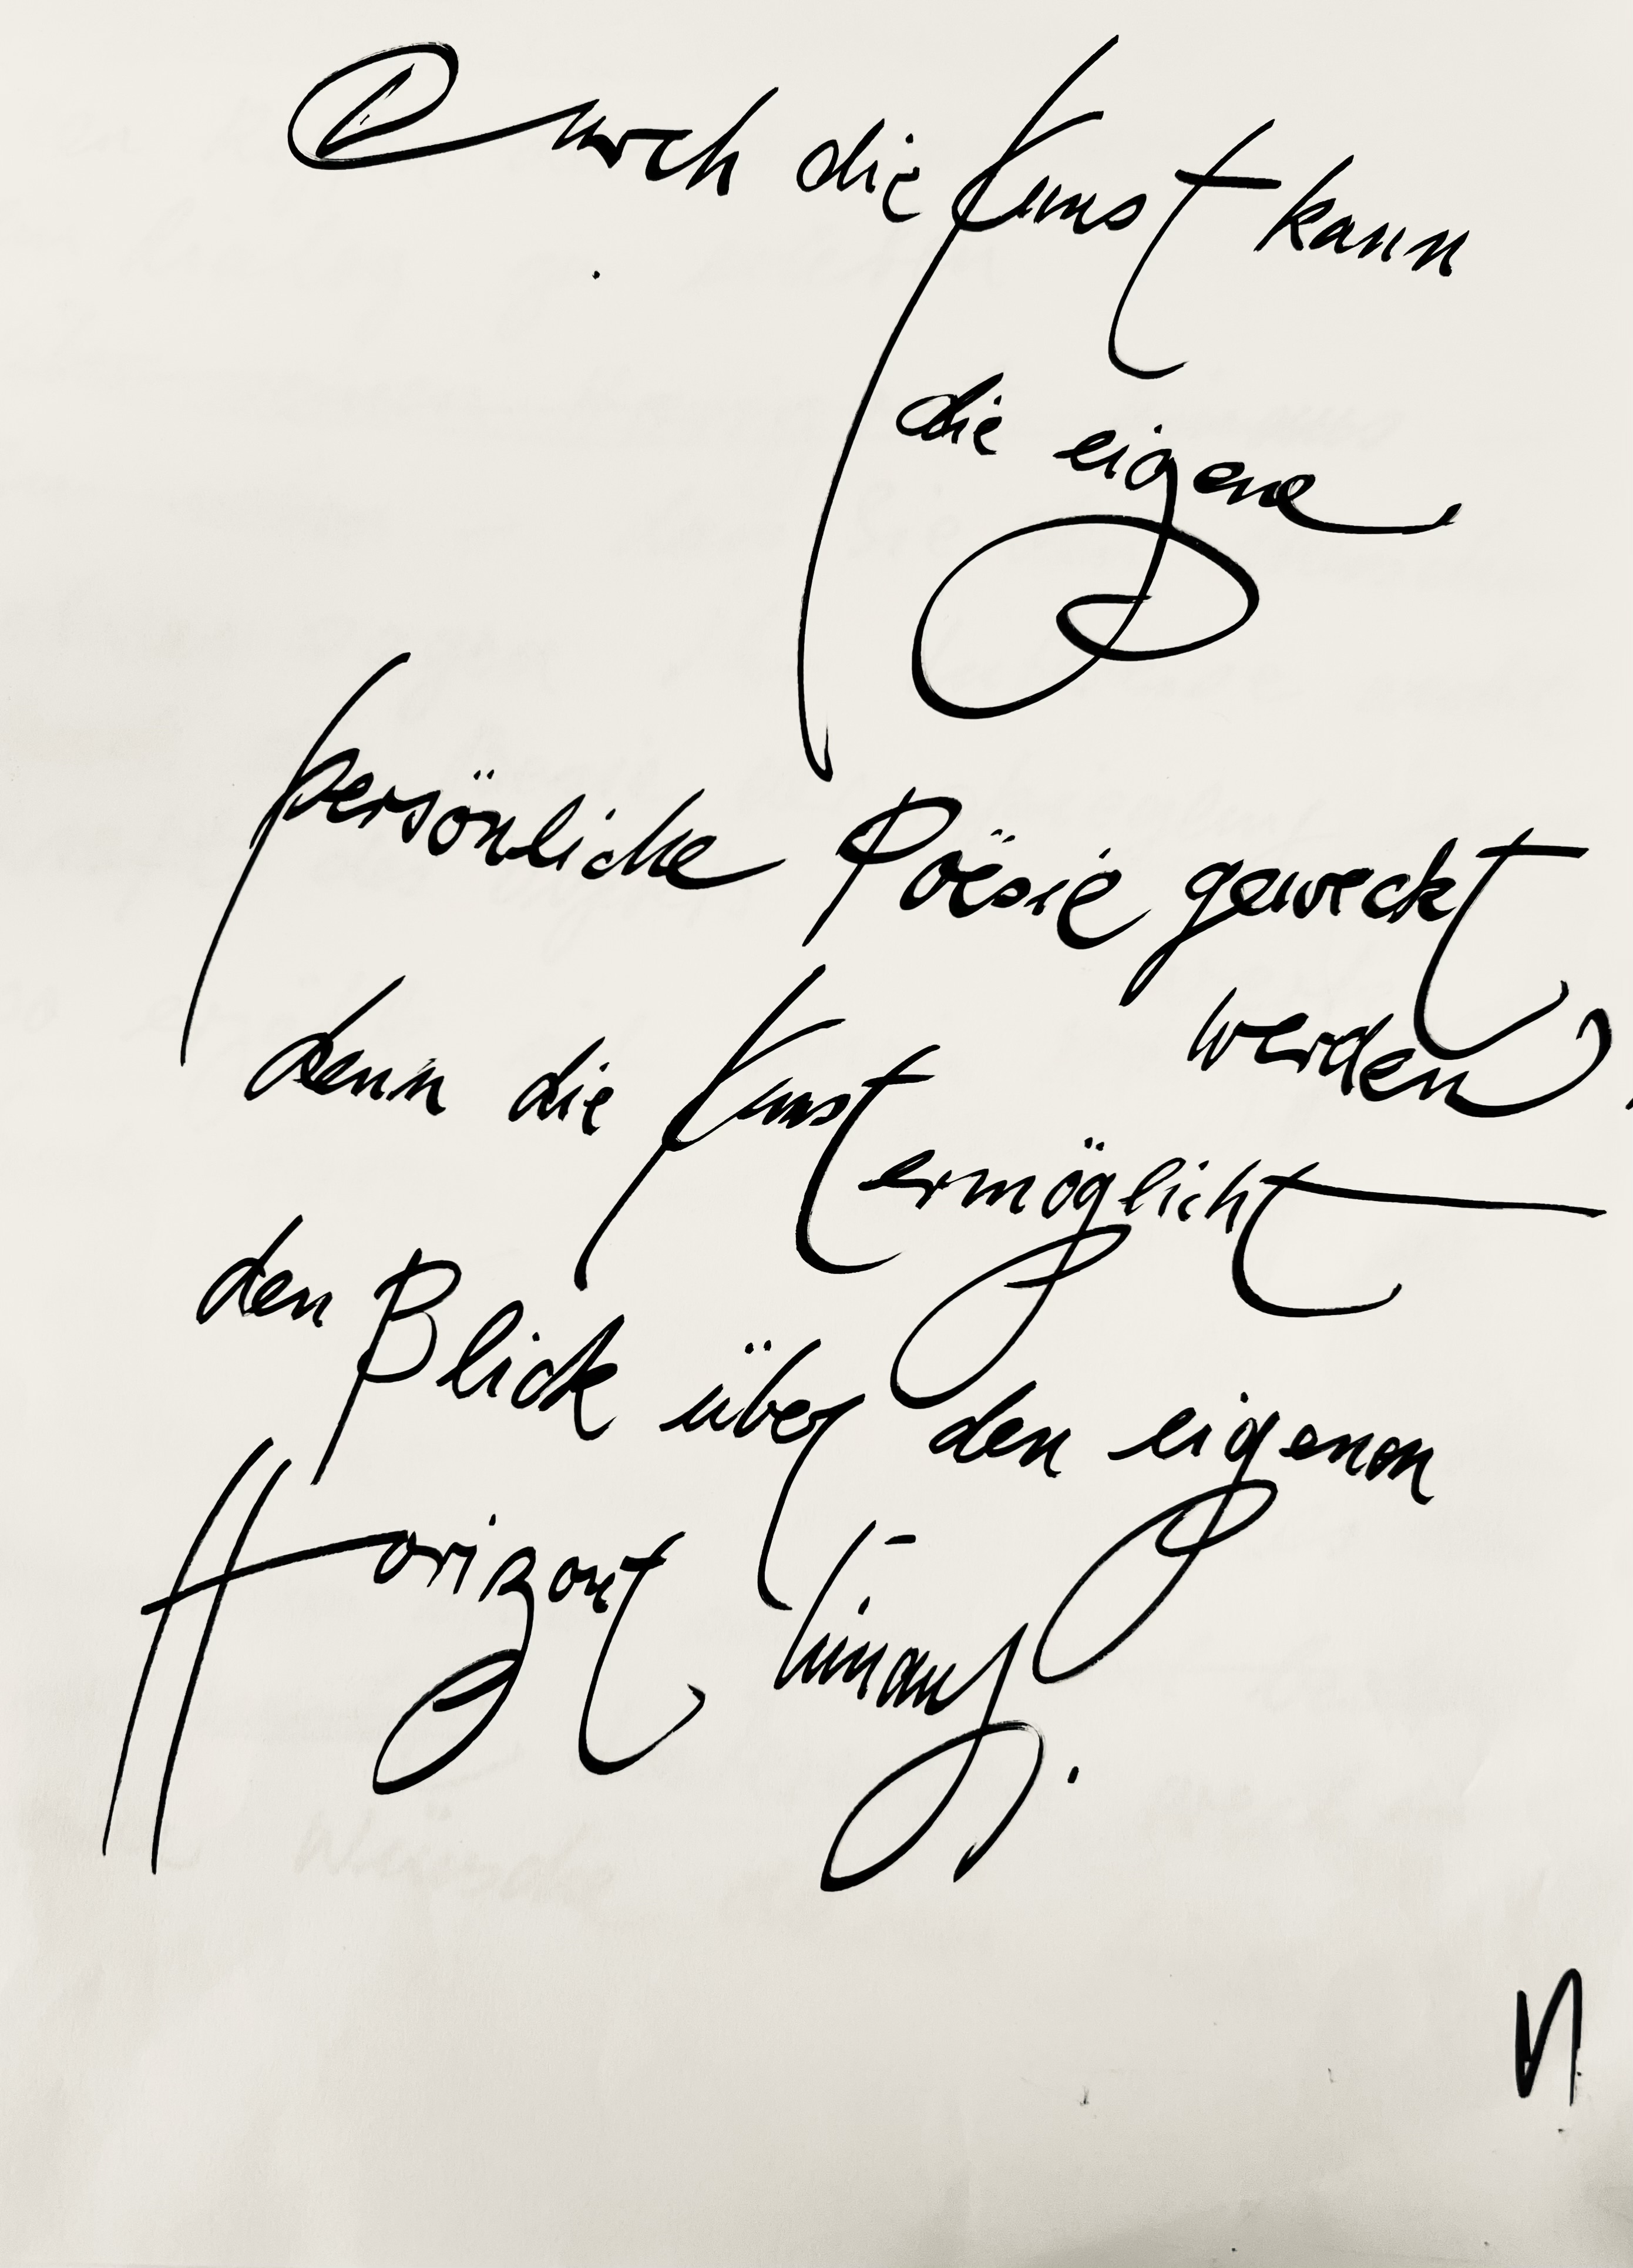 Durch die Kunst kann
die eigene
persönliche Poësie geweckt
werden,
denn die Kunst ermöglicht
den Blick über den eigenen
Horizont hinaus.
N